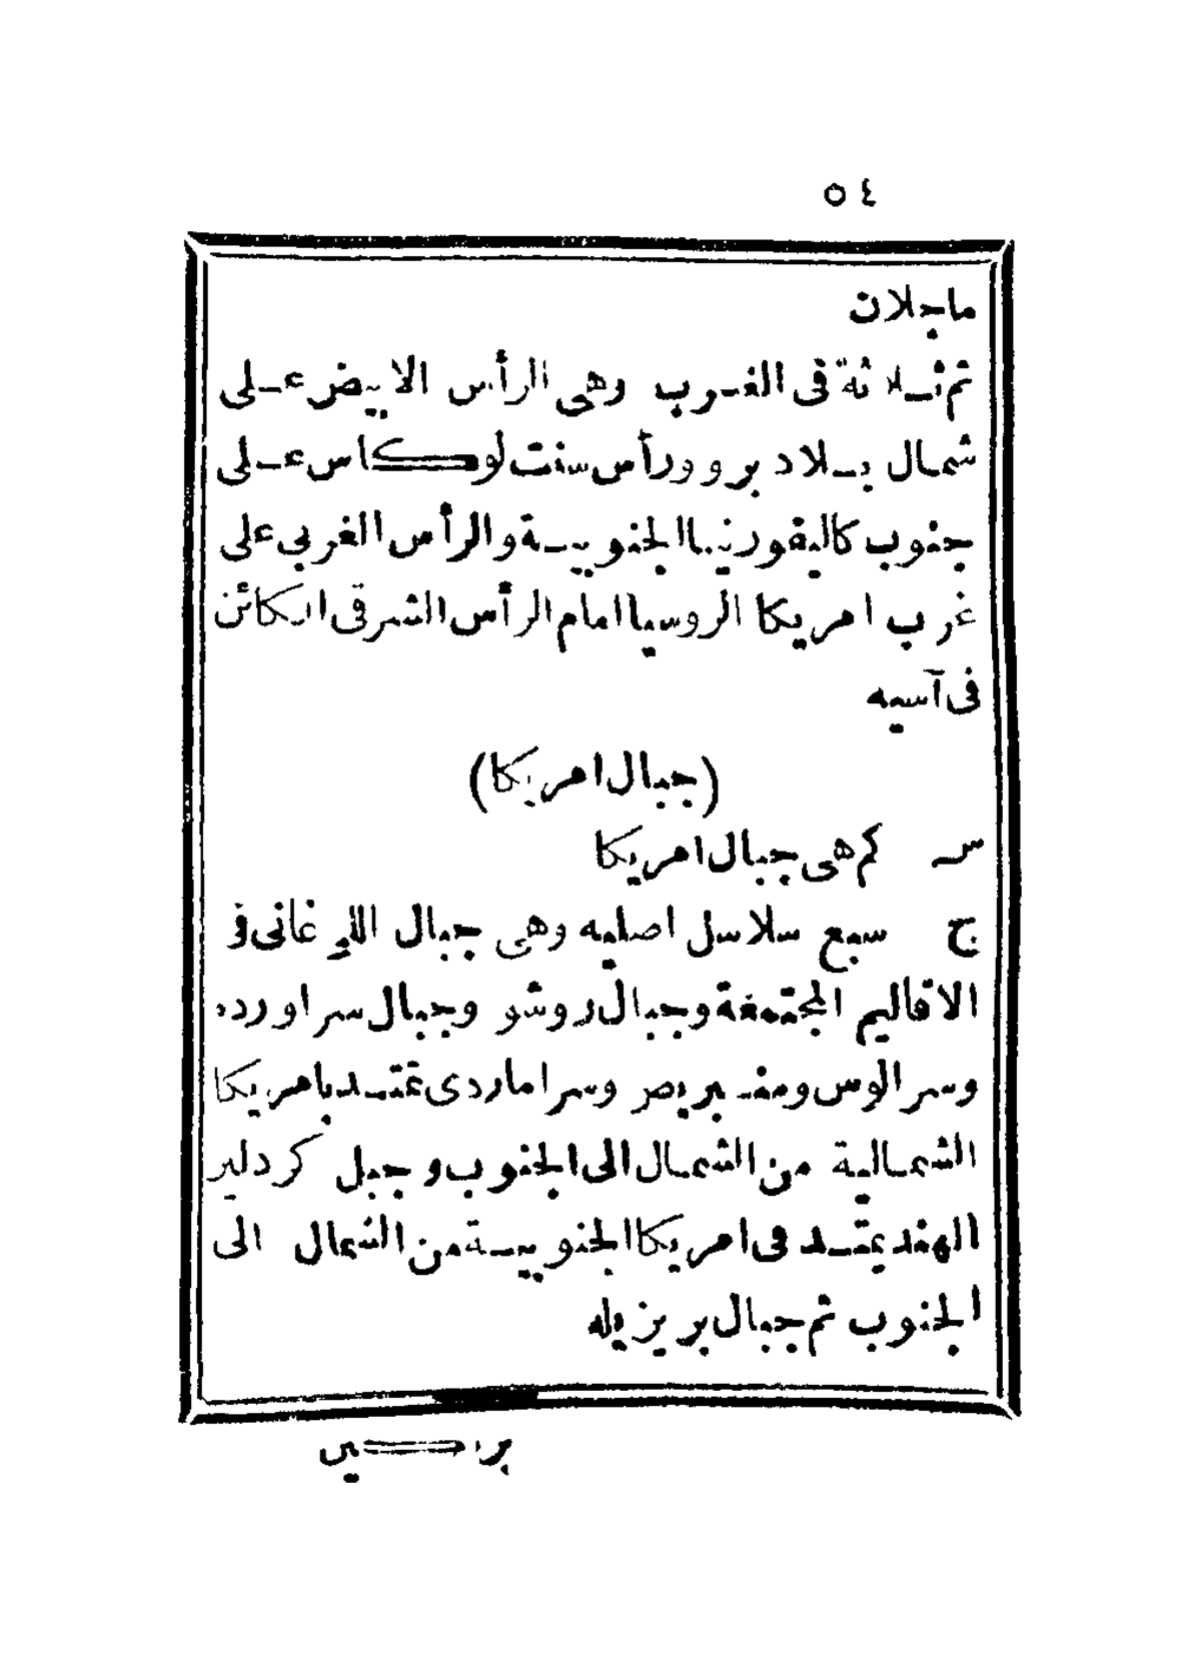 ٥٤
ماجلان
ثم ثلاثة فى الغرب وهى الرأس الابيض على
شمال بلاد برو ورأس سنت لوكاس على
جنوب كاليفورنيا الجنوبية والرأس الغربى على
غرب امريكا الروسيا امام الرأس الشرقى الكائن
فى آسيه
(جبال امريكا)
س كم هى جبال امريكا
ج سبع سلاسل اصليه وهى جبال اللي غانى فى
الاقاليم المجتمعة وجبال روشو وجبال سرا ورده
وسر الوس ومنـ بريص وسرا ماردى تمتد بامريكا
الشمالية من الشمال الى الجنوب وجبل كردلير
الهند يمتد فى امريكا الجنوبية من الشمال الى
الجنوب ثم جبال بريزيله
براكين